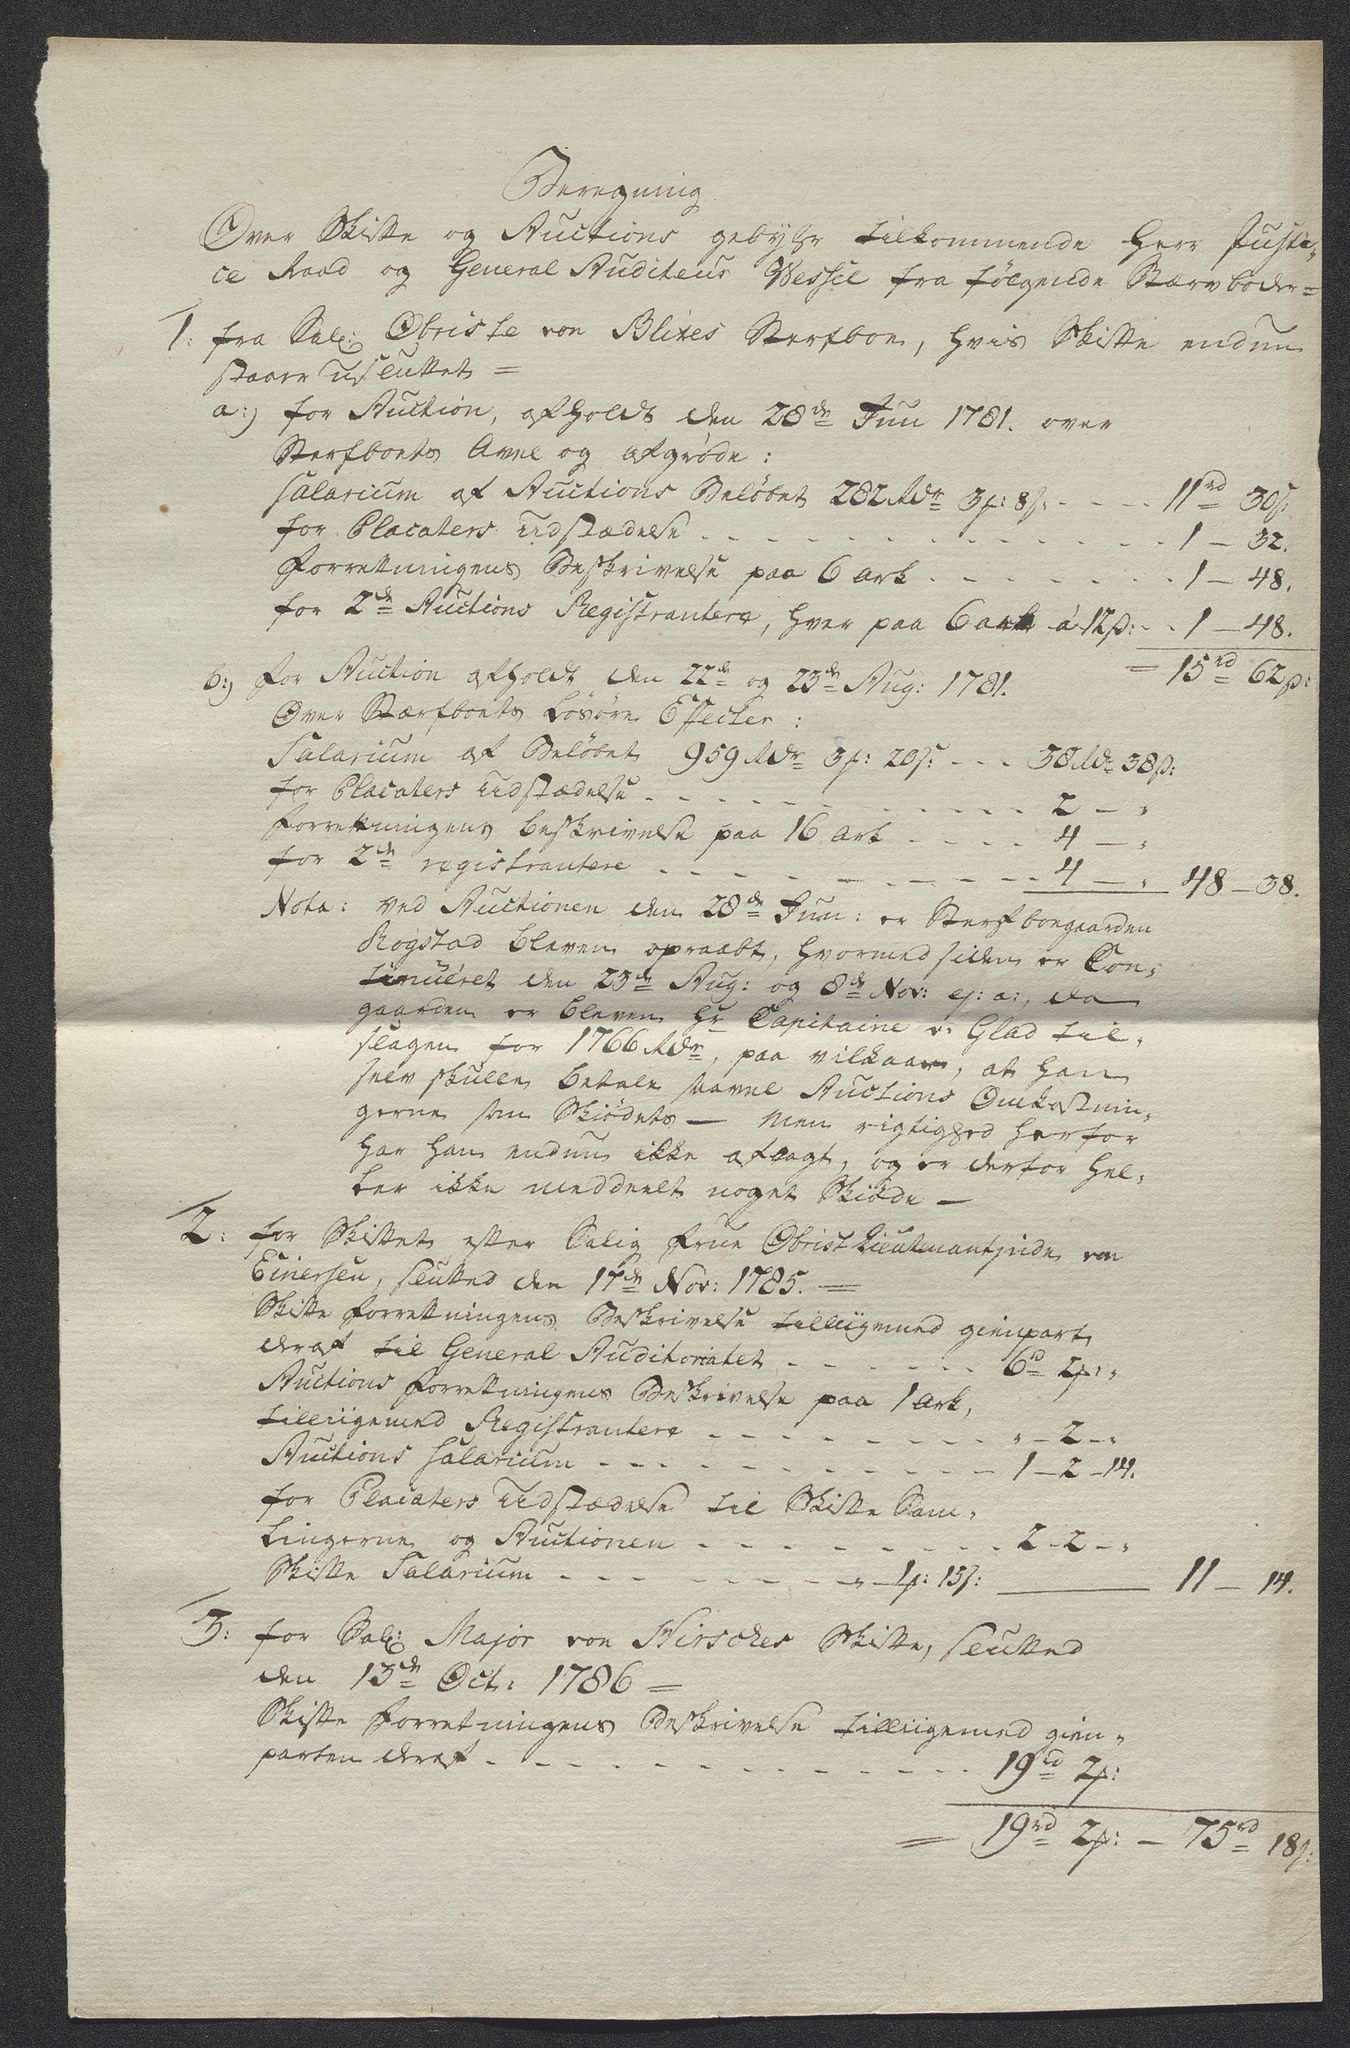 Beregning
Over Skifte og Auctions gebyhr tilkommende Herr Justi„
ce Raad og General Auditeur Wessel fra følgende Stervboder=
1: fra Sal: Obriste von Blixes Sterfboe, hvis Skifte endnu
staaer usluttet =
a:) for Auction, afholdt den 28de Juni 1781. over
Sterfboets Avel og afgrøde:
Salarium af Auctions Beløbet 282 Rdr 3p: 8s: - - - 11rd 30s:
for Placaters Udstædelse - - - 1 — 32.
Forretningens Beskrivelse paa 6 Ark - - - 1 — 48.
for 2de Auctions Registrantere, hver paa 6 ark á 12s: - - 1 — 48.
= 15rd 62s:
b:) For Auction afholdt den 22de og 23de Aug: 1781.
Over Stærfboets Løsøre Effecter:
Salarium af Beløbet 959 Rdr 3p: 20s: - - - 38 Rdr 38s:
for Placaters Udstædelse - - - 2 — „
Forretningens beskrivelse paa 16 Ark - - - 4 — „
for 2de registrantere - - - 4 — „ 48 — 38.
Nota: ved Auctionen den 28de Juni: er Sterfboegaarden
Rogstad bleven opraabt, hvormed siden er Con„
tinueret den 23de Aug: og 8de Nov: ej: a:, da
gaarden er bleven Hr Capitaine v: Glad til„
slagen for 1766 Rdr, paa vilkaar, at han
selv skulle betale saavel Auctions Omkostnin„
gerne som Skiødets — Men rigtighed herfor
har han endnu ikke aflagt, og er derfor hel„
ler ikke meddeelt noget Skiøde —
2: for Skiftet efter Salig Frue Obristlieutenantinde von
Einersen, slutted den 17de Nov: 1785. =
Skifte Forretningens Beskrivelse tilligemed gienpart
deraf til General Auditoriatet - - - 6rd 2p: „
Auctions Forretningens Beskrivelse paa 1 Ark,
tilligemed Registrantere - - - „ — 2 — „
Auctions Salarium - - - 1 — 2 — 14.
for Placaters Udstædelse til Skifte Sam„
lingerne og Auctionen - - - 2 - 2 — „
Skifte Salarium - - - „ — 1p: 13s: — 11 — 14.
3: for Sal: Major von Hirsches Skifte, slutted
den 13de Oct: 1786 =
Skifte Forretningens Beskrivelse tilligemed gien„
parten deraf - - - 19rd 2p:
= 19rd 2p: — 75rd 18s: